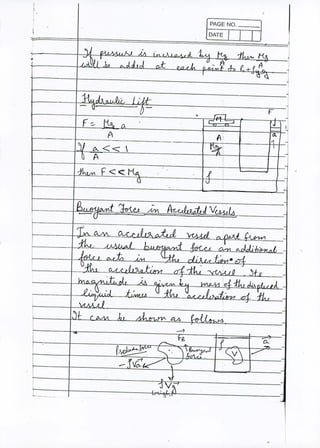 PAGE NO.
DATE
If pressure is increased by Mg/A then Mg/A
will be added at each point
Hydraulic Lift
F = Mg a
A
If a << 1
A
then F << Mg
F
M
A
a
Mg
A
ρ
Buoyant Force in Accelerated Vessels
In an accelerated vessel apart from
the usual buoyant force an additional
force acts in the direction of
the acceleration of the vessel. Its
magnitude is given by mass of the displaced
liquid times the acceleration of the
vessel
It can be shown as follows.
FB
Buoyant
force
Pseudo force
V
a
(weight)